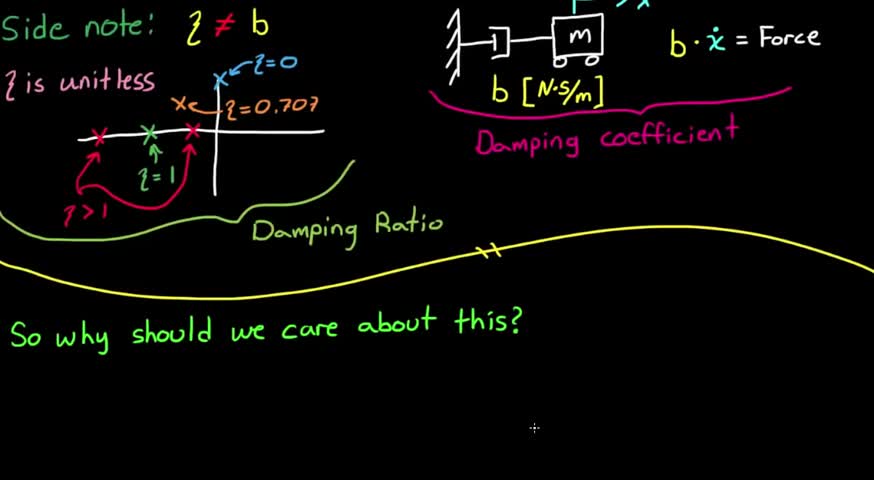 Side note: ζ ≠ b
ζ is unitless
ζ=0
ζ=0.707
ζ=1
ζ>1
Damping Ratio
x
m
b · ẋ = Force
b [N·s/m]
Damping coefficient
So why should we care about this?